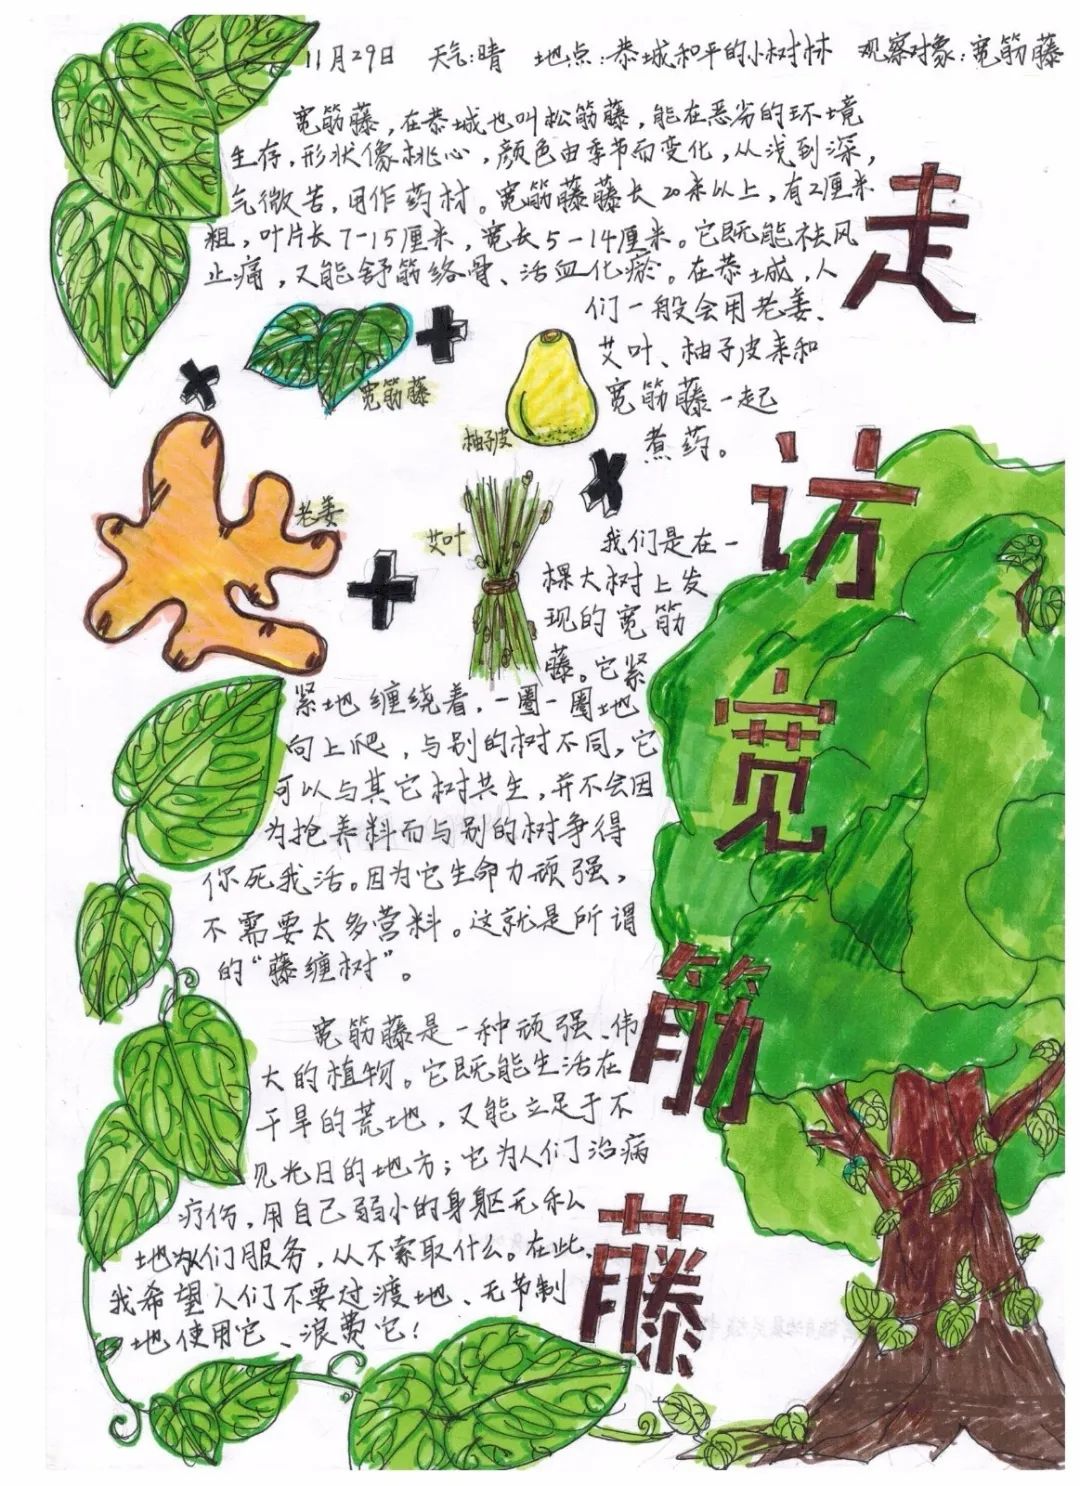 11月29日 天气:晴 地点:恭城和平的小树林 观察对象:宽筋藤
走访宽筋藤
宽筋藤，在恭城也叫松筋藤，能在恶劣的环境
生存，形状像桃心，颜色由季节而变化，从浅到深，
气微苦，用作药材。宽筋藤藤长20米以上，有2厘米
粗，叶片长7-15厘米，宽长5-14厘米。它既能祛风
止痛，又能舒筋络骨、活血化瘀。在恭城，人
们一般会用老姜、
艾叶、柚子皮来和
宽筋藤一起
煮药。
宽筋藤
柚子皮
老姜
艾叶
我们是在一
棵大树上发
现的宽筋
藤。它紧
紧地缠绕着，一圈一圈地
向上爬，与别的树不同，它
可以与其它树共生，并不会因
为抢养料而与别的树争得
你死我活。因为它生命力顽强，
不需要太多营料。这就是所谓
的“藤缠树”。
宽筋藤是一种顽强、伟
大的植物。它既能生活在
干旱的荒地，又能立足于不
见光日的地方；它为人们治病
疗伤，用自己弱小的身躯无私
地为人们服务，从不索取什么。在此，
我希望人们不要过渡地、无节制
地使用它、浪费它！